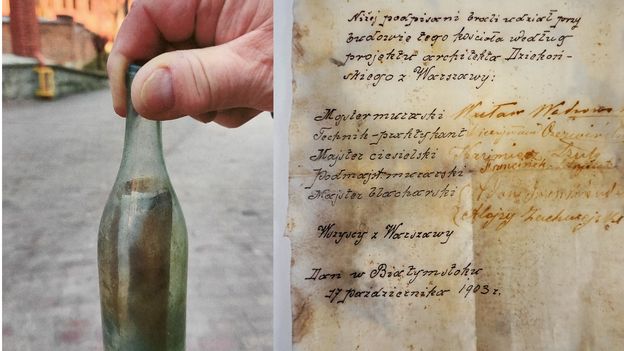 Niżej podpisani brali udział przy
budowie tego kościoła według
projektu architekta Dziekoń-
skiego z Warszawy:
Majster murarski Wacław
Technik-praktykant
Majster ciesielski
Podmajst. murarski
Majster blacharski
Alojzy
Wszyscy z Warszawy
Dan w Białymstoku
17 października 1903 r.